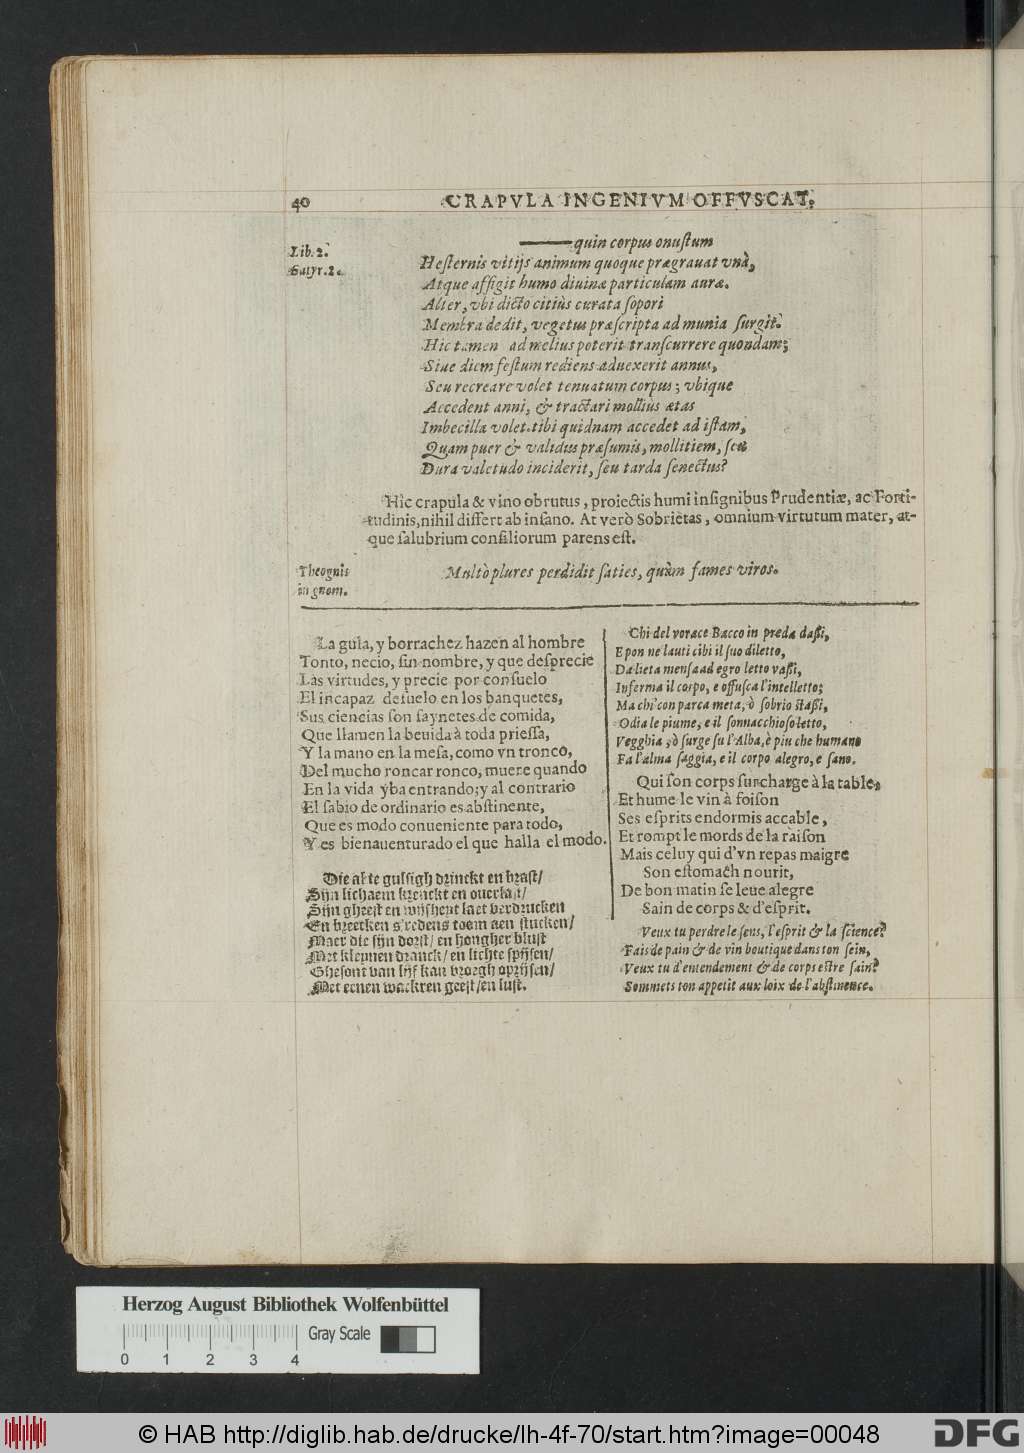 40 CRAPVLA INGENIVM OFFVSCAT.
Lib. 2.
Satyr. 2.
quin corpus onuſtum
Heſternis vitijs animum quoque prægrauat vnà,
Atque affigit humo diuinæ particulam auræ.
Alter, vbi dicto citiùs curata ſopori
Membra dedit, vegetus præſcripta ad munia ſurgit.
Hic tamen ad melius poterit tranſcurrere quondam;
Siue diem feſtum rediens aduexerit annus,
Seu recreare volet tenuatum corpus; vbique
Accedent anni, & tractari molliùs ætas
Imbecilla volet. tibi quidnam accedet ad iſtam,
Quam puer & validus præſumis, mollitiem, ſeu
Dura valetudo inciderit, ſeu tarda ſenectus?
Hic crapula & vino obrutus, proiectis humi inſignibus Prudentiæ, ac Forti-
tudinis, nihil differt ab inſano. At verò Sobrietas, omnium virtutum mater, at-
que ſalubrium conſiliorum parens eſt.
Theognis
in gnom.
Multò plures perdidit ſaties, quàm fames viros.
La gula, y borrachez hazen al hombre
Tonto, necio, ſin nombre, y que deſprecie
Las virtudes, y precie por conſuelo
El incapaz deſuelo en los banquetes,
Sus ciencias ſon ſaynetes de comida,
Que llamen la beuida à toda prieſſa,
Y la mano en la meſa, como vn tronco,
Del mucho roncar ronco, muere quando
En la vida yba entrando; y al contrario
El ſabio de ordinario es abſtinente,
Que es modo conueniente para todo,
Y es bienauenturado el que halla el modo.
Die al te gulſigh drinckt en braſt/
Sijn lichaem krenckt en ouerlaſt/
Sijn gheeſt en wijſheyt laet verdrucken
En breecken s'redens toom aen ſtucken/
Maer die ſijn dorſt/ en hongher bluſt
Met kleynen dranck/ en lichte ſpijſen/
Gheſont van lijf kan vroegh oprijſen/
Met eenen wackren geeſt/ en luſt.
Chi del vorace Bacco in preda daſſi,
E pon ne lauti cibi il ſuo diletto,
Da lieta menſa ad egro letto vaſſi,
Inferma il corpo, e offuſca l'intelletto;
Ma chi con parca meta, ò ſobrio ſtaſſi,
Odia le piume, e il ſonnacchioſo letto,
Vegghia, ò ſurge ſu l'Alba, è piu che humano
Fa l'alma ſaggia, e il corpo alegro, e ſano.
Qui ſon corps ſurcharge à la table,
Et hume le vin à foiſon
Ses eſprits endormis accable,
Et rompt le mords de la raiſon
Mais celuy qui d'vn repas maigre
Son eſtomach nourit,
De bon matin ſe leue alegre
Sain de corps & d'eſprit.
Veux tu perdre le ſens, l'eſprit & la ſcience?
Fais de pain & de vin boutique dans ton ſein,
Veux tu d'entendement & de corps eſtre ſain?
Sommets ton appetit aux loix de l'abſtinence.
Herzog August Bibliothek Wolfenbüttel
Gray Scale
0 1 2 3 4
© HAB http://diglib.hab.de/drucke/lh-4f-70/start.htm?image=00048
DFG